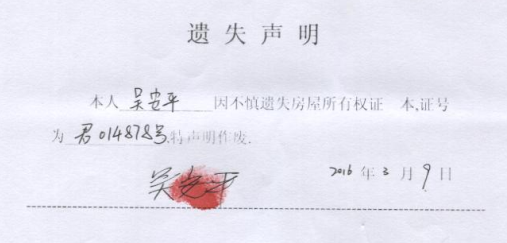 遗失声明
本人 吴安平 因不慎遗失房屋所有权证 本,证号
为 君014878号.特声明作废.
吴安平 2016 年 3 月 9 日